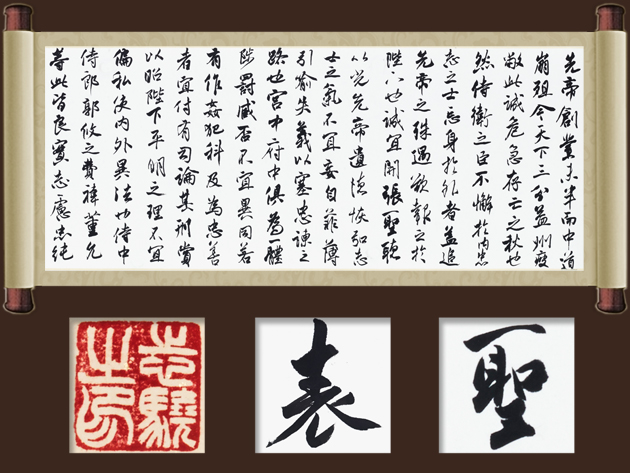 先帝創業未半而中道
崩殂今天下三分益州疲
敝此誠危急存亡之秋也
然侍衛之臣不懈於內忠
志之士忘身於外者蓋追
先帝之殊遇欲報之於
陛下也誠宜開張聖聽
以光先帝遺德恢弘志
士之氣不宜妄自菲薄
引喻失義以塞忠諫之
路也宮中府中俱為一體
陟罰臧否不宜異同若
有作姦犯科及為忠善
者宜付有司論其刑賞
以昭陛下平明之理不宜
偏私使內外異法也侍中
侍郎郭攸之費禕董允
等此皆良實志慮忠純
聖
表
志驍
之印